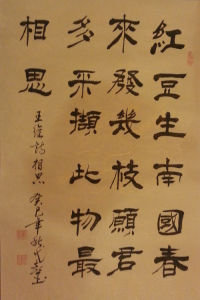 紅豆生南國春
來發幾枝願君
多采擷此物最
相思
王維詩相思 癸巳年